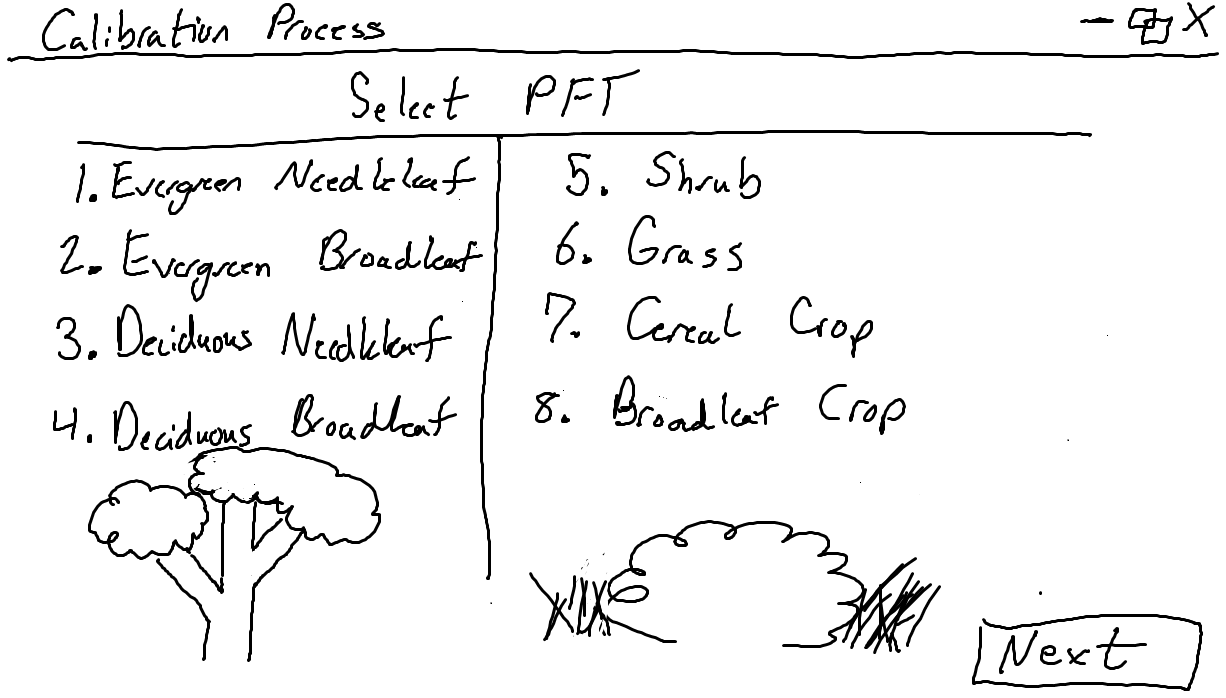 Calibration Process
Select PFT
1. Evergreen Needleleaf
2. Evergreen Broadleaf
3. Deciduous Needleleaf
4. Deciduous Broadleaf
5. Shrub
6. Grass
7. Cereal Crop
8. Broadleaf Crop
Next